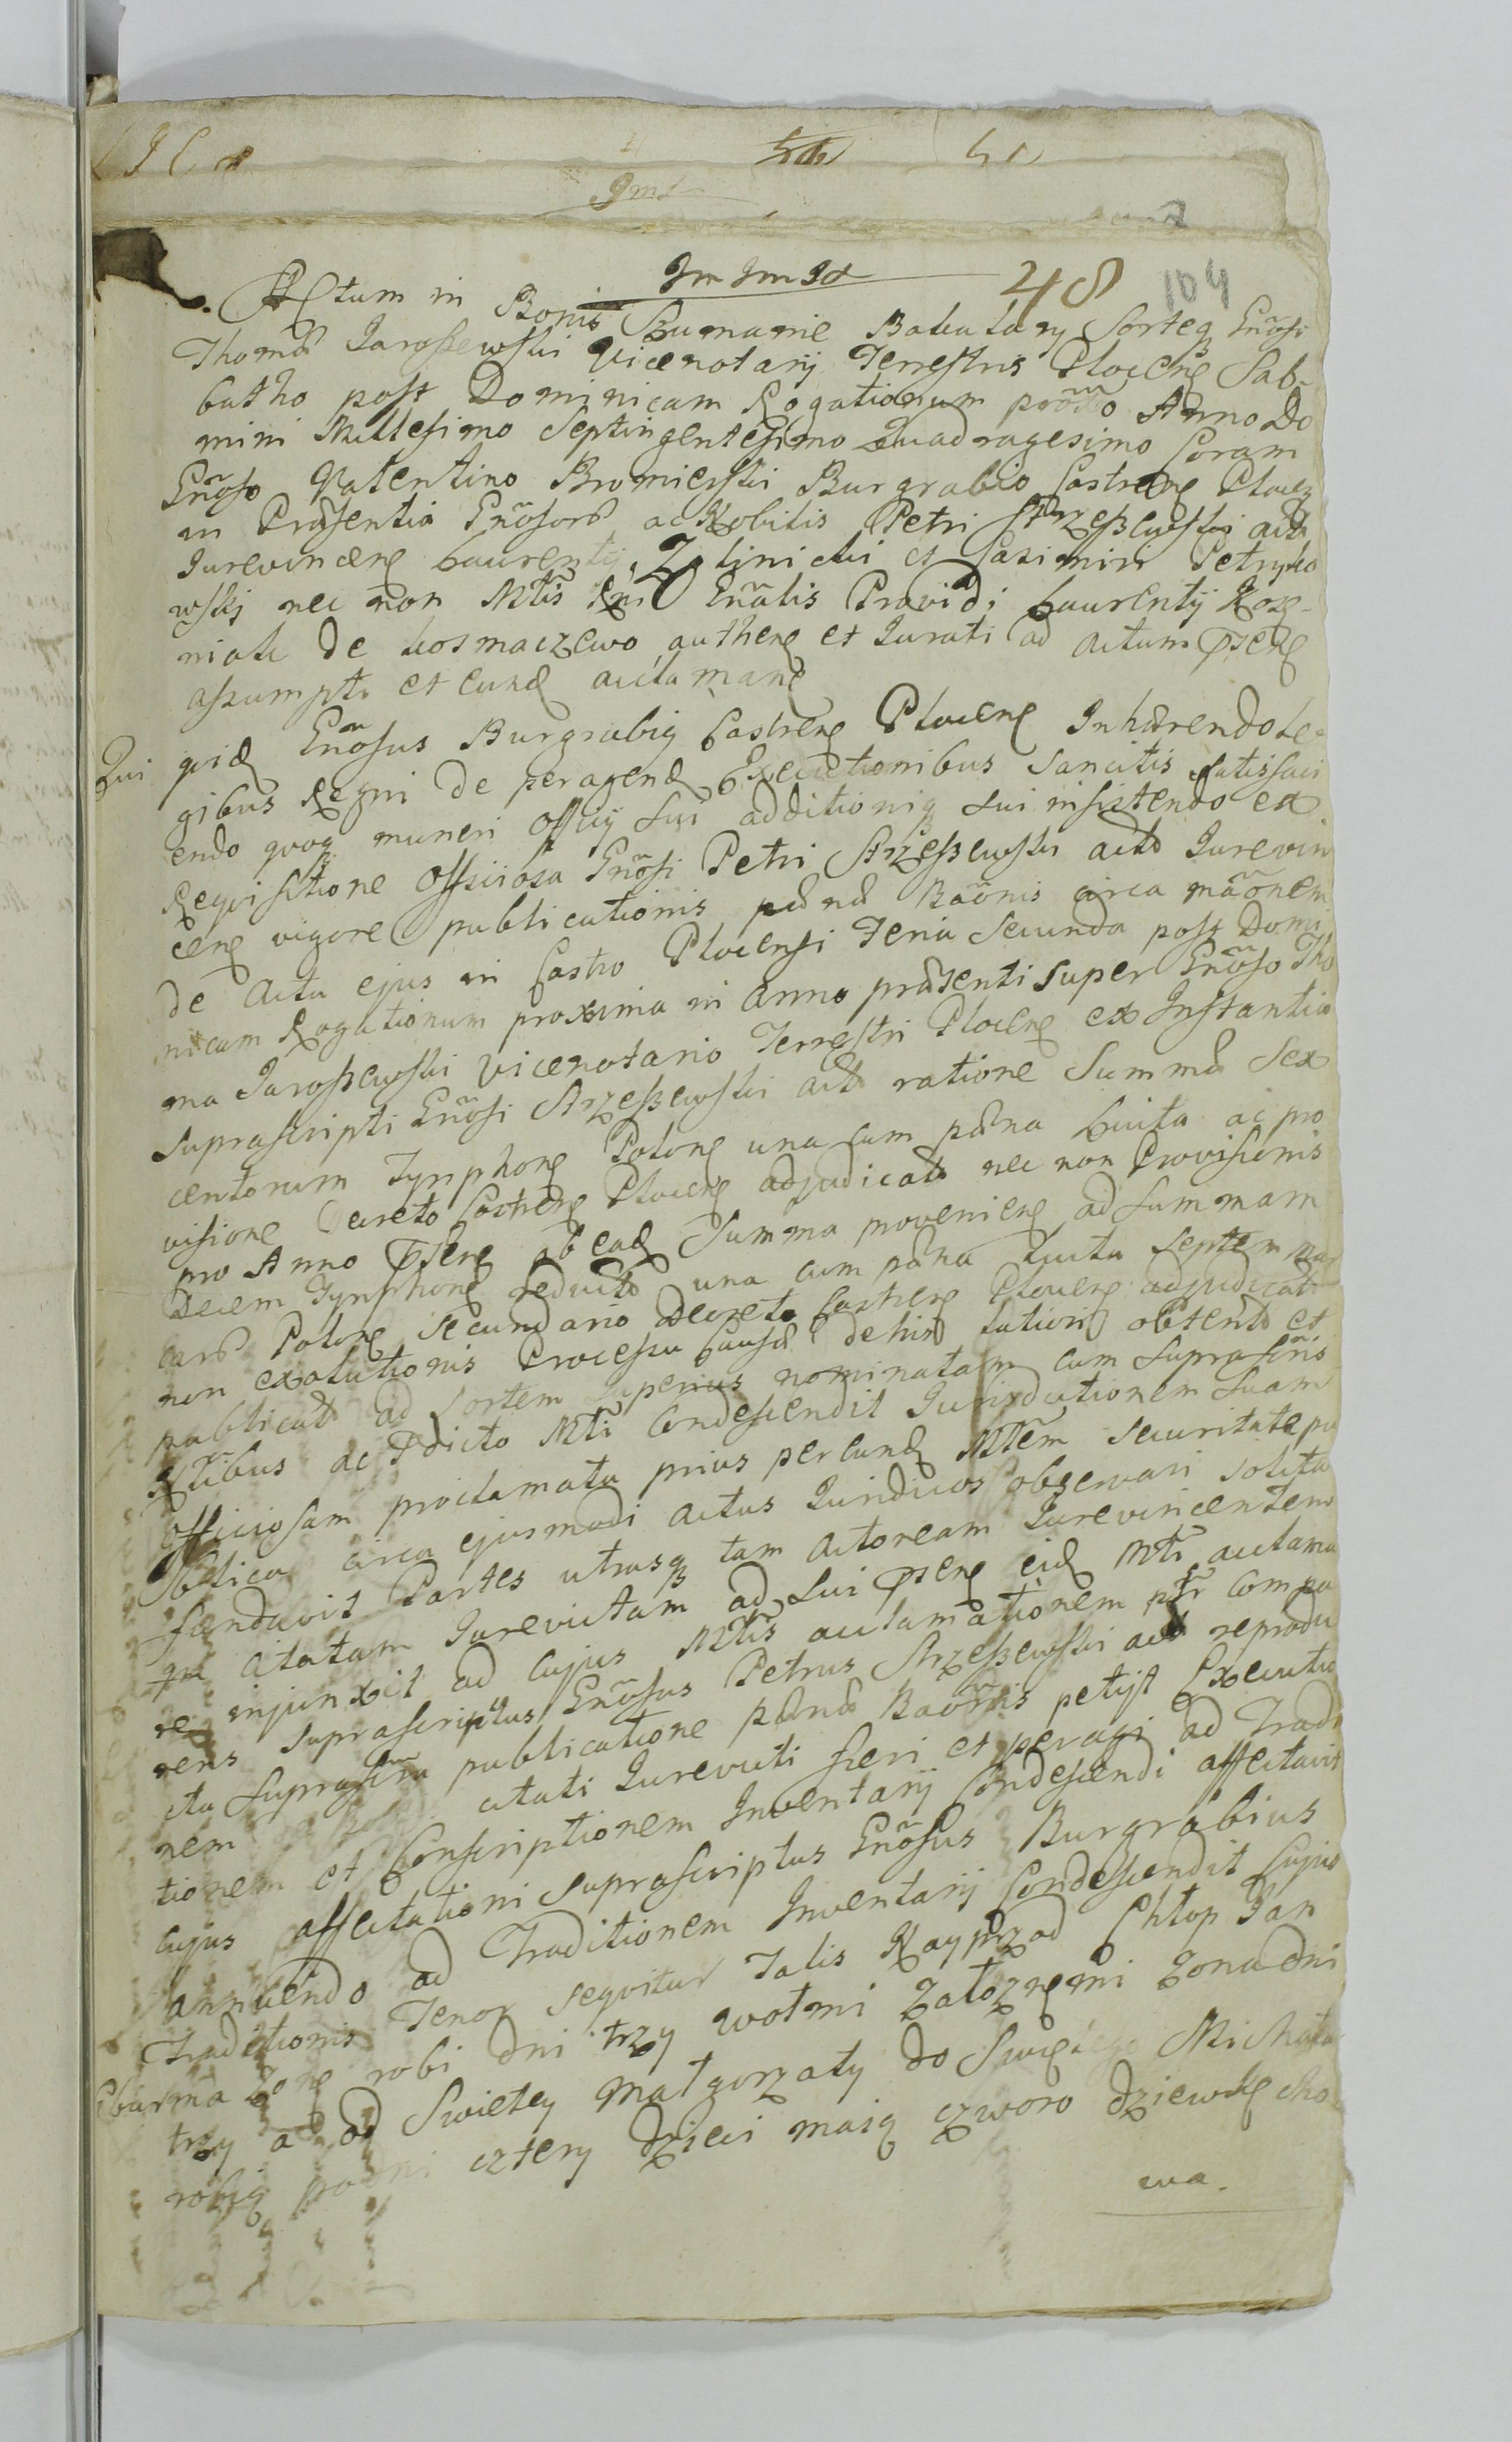 48 104
Actum in Bonis Szumanie Babulany Sorteq Gñosi
Thomæ Jaroszewski Vicenotarij Terrestris Plocen Sab-
batho post Dominicam Rogationum proxĩo Anno Do
mini Millesimo Septingentesimo Quadragesimo Coram
Gñoso Valentino Bromierski Burgrabio Castren Plocen
in Præsentia Gñosorũ ac Nobilis Petri Strzeszewski act
Jurevincen Laurentij Zelinicki et Casimiri Petryko
wskj nec non Mtis Rni Gñalis Providi Laurentij Koze-
niak de kosmaczewo authen et Jurati ad actum psen
assumpti et eund acclaman
Qui quid Gñosus Burgrabiq Castren Plocen Inhærendo Le-
gibus Regni de peragend Executionibus Sancitis satisfaci
endo quoq muneri officij sui additioniq sui insistendo ex
Requisitione officiosa Gñosi Petri Strzeszewski act Jurevin
cen vigore publicationis pænæ Bãonis circa mãonem
de Actu ejus in Castro Plocensi Feria Secunda post Domi
nicam Rogationum proxima in Anno præsenti super Gñoso Tho
ma Jaroszewski Vicenotario Terrestri Plocen ex Instantia
suprascripti Gñosi Strzeszewski act ratione Summæ Sex
centorum Tynphon Polon una cum pæna Lucta ac pro
visione Decreto Castren Plocen adjudicat nec non Provisionis
pro Anno psen ab ead Summa provenien ad summam
Decem Tynphon reduct una cum pæna Lucta Septem mar
carũ Polon secundario Decreto Castren Plocen adjudicat
non exolutionis Processu causæ dehinc latiori obtent et
publicat ad Sortem superius nominatam cum suprascris
Nlibus ac Pdicto Mti Condescendit Jurisdictionem suam
officiosam proclamata prius per eund Mtem securitate pu
blica circa ejusmodi actus Juridicos observari solita
fundavit Partes utrasq tam Actoream Jurevincentem
qu citatam Jurevictam ad sui psen eid Mti acclama
re injunxit ad cujus Mtis acclamationem ptr Compa
rens suprascriptus Gñosus Petrus Strzeszewski act reprodu
cta suprascra publicatione pænæ Bãonis petijt Executio
nem citati Jurevicti fieri et peragi ad Tradi
tionem et Conscriptionem Inventarij Condescendi affectavit
cujus affectationi suprascriptus Gñosus Burgrabius
annuendo ad Traditionem Inventarij Condescendit Cujus
Traditionis Tenor sequitur Talis Nayprzod Chłop Jan
ma Zone robi dni trzy wołmi załoznemi zona dni
trzy a od Swietey Małgorzaty do Swietego Michała
robią po dni cztery dzieci maią czworo dziewke cho
wa.